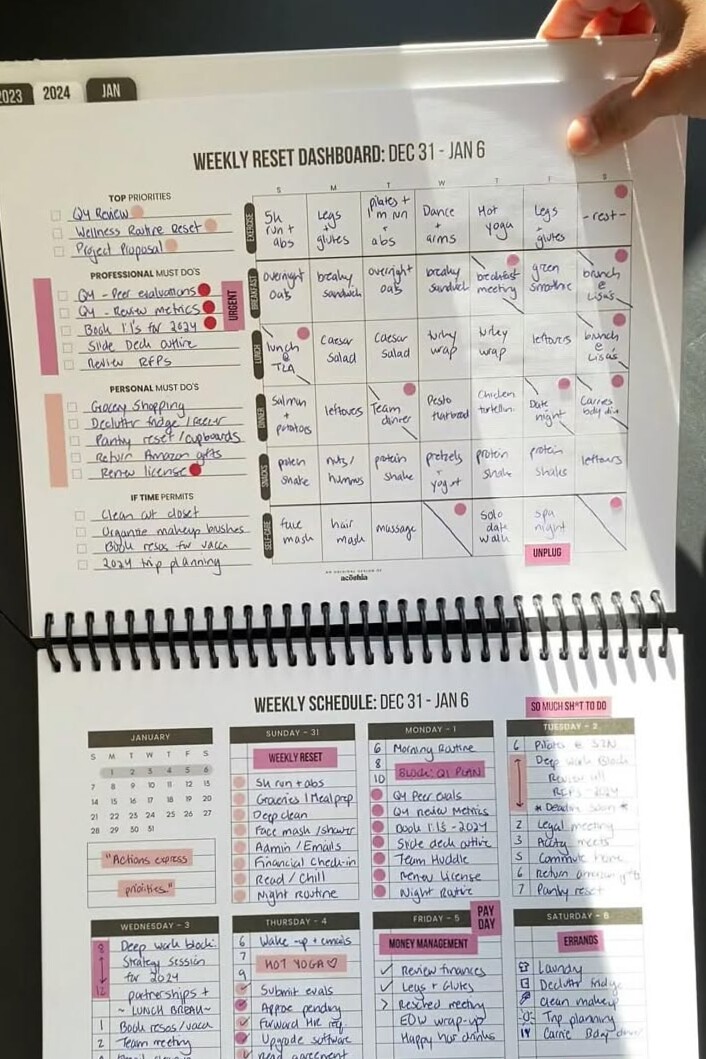 2023
2024
JAN
WEEKLY RESET DASHBOARD: DEC 31 - JAN 6
TOP PRIORITIES
Q4 Review
Wellness Routine Reset
Project Proposal
PROFESSIONAL MUST DO'S
Q4 - Peer evaluations
Q4 - Review metrics
Book 1:1's for 2024
Slide Deck outline
Review RFPS
URGENT
PERSONAL MUST DO'S
Grocery Shopping
Declutter fridge /
Pantry reset / cupboards
Return Amazon gifts
Renew license
IF TIME PERMITS
Clean out closet
Organize makeup brushes
Book resos for vaca
2024 trip planning
S M T W T F S
EXERCISE
5k run + abs
Legs + glutes
pilates + 1'm run + abs
Dance + arms
Hot yoga
Legs + glutes
- rest -
BREAKFAST
overnight oats
breaky sandwich
overnight oats
breaky sandwich
breakfast meeting
green smoothie
brunch @ Lisa's
LUNCH
lunch @
Caesar salad
Caesar salad
turkey wrap
turkey wrap
leftovers
brunch @ Lisa's
DINNER
Salmon + potatoes
leftovers
Team dinner
Pesto flatbread
Chicken tortellini
Date night
Carries bday din
SNACKS
protein shake
nuts / hummus
protein shake
pretzels + yogurt
protein shake
protein shake
leftovers
SELF-CARE
face mask
hair mask
massage
solo date walk
spa night
UNPLUG
AN ORIGINAL DESIGN BY
acöshia
WEEKLY SCHEDULE: DEC 31 - JAN 6
SO MUCH SH*T TO DO
JANUARY
S M T W T F S
1 2 3 4 5 6
7 8 9 10 11 12 13
14 15 16 17 18 19 20
21 22 23 24 25 26 27
28 29 30 31
"Actions express
priorities."
SUNDAY - 31
WEEKLY RESET
5k run + abs
Groceries / Meal prep
Deep clean
Face mask / shower
Admin / Emails
Financial Check-in
Read / Chill
Night Routine
MONDAY - 1
6 Morning Routine
8
10 BLOCK: Q1 PLAN
Q4 Peer evals
Q4 review Metrics
Book 1:1's - 2024
Slide deck outline
Team Huddle
Renew License
Night Routine
TUESDAY - 2
6 Pilates @
Deep Work Block
Review all
RFPS - 2024
* Deadline soon *
2 Legal meeting
3 meets
5 Commute home
6 Return amazon gifts
7 Pantry reset
WEDNESDAY - 3
8 Deep work block:
Strategy session
for 2024
12 partnerships +
~ LUNCH BREAK ~
1 Book resos/vaca
2 Team meeting
THURSDAY - 4
6 Wake-up + emails
7
HOT YOGA ♡
9
Submit evals
Approve pending
Forward HR req
Upgrade software
Read agreement
FRIDAY - 5
PAY DAY
MONEY MANAGEMENT
✓ Review finances
✓ Legs + Glutes
> Resched meeting
EOW wrap-up
Happy hour drinks
SATURDAY - 6
ERRANDS
Laundry
Declutter fridge
clean makeup
Trip planning
Carrie Bday dinner